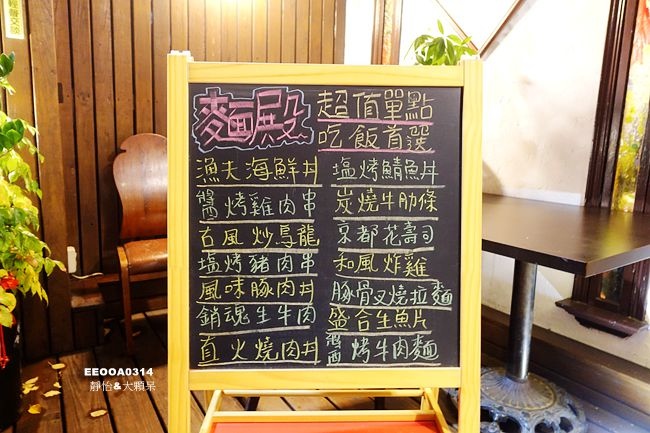 輕聲交談
麵殿
超值單點
吃飯首選
漁夫海鮮丼
醬烤雞肉串
古風炒烏龍
塩烤豬肉串
風味豚肉丼
銷魂生牛肉
直火燒肉丼
塩烤鯖魚丼
炭燒牛肋條
京都花壽司
和風炸雞
豚骨叉燒拉麵
盛合生魚片
醬烤牛肉麵
EEOOA0314
靜怡&大顆呆